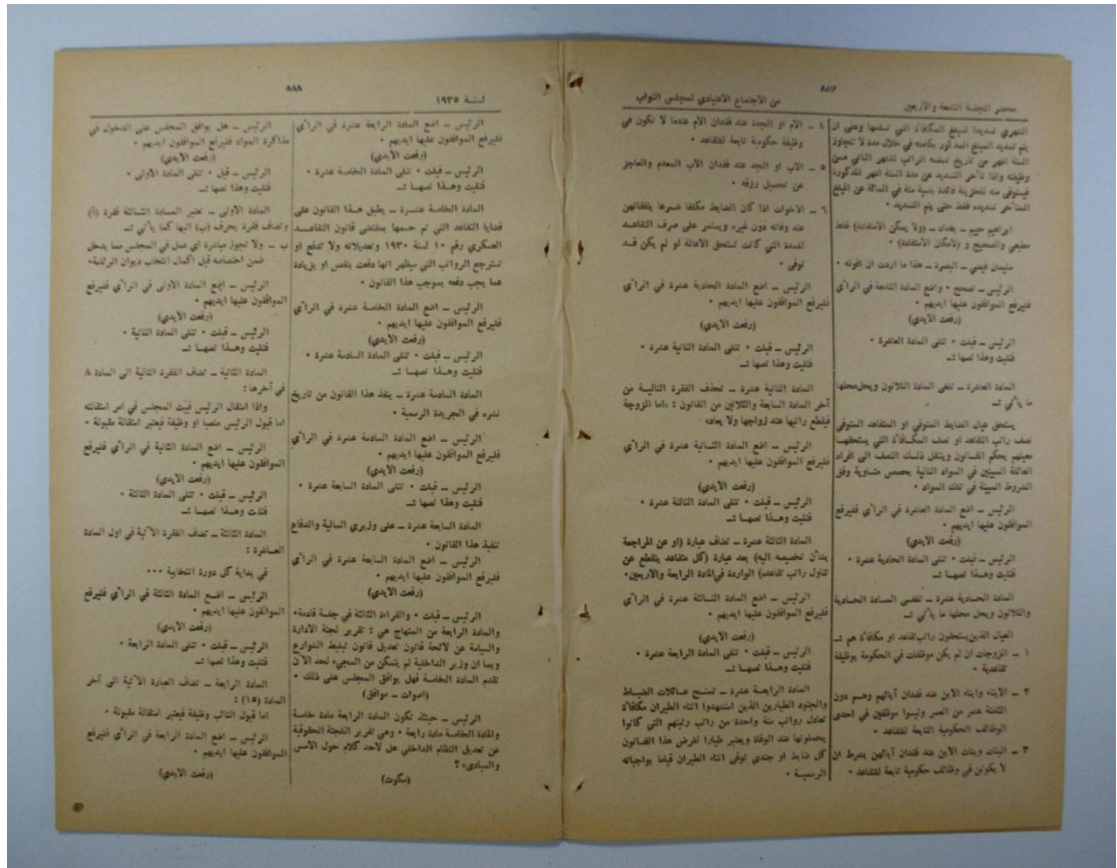 محضر الجلسة التاسعة والأربعين
من الاجتماع الاعتيادي لمجلس النواب
الشهري تسديدا لمبلغ المكافأة التي تسلمها وعلى ان
يتم تسديد المبلغ المذكور بكامله في خلال مدة لا تتجاوز
الستة اشهر من تاريخ تسلمه الراتب للشهر الثاني من
وظيفته واذا تأخر التسديد عن مدة الستة اشهر المذكورة
فيستوفى منه للخزينة فائدة بنسبة مئة في المائة عن المبلغ
المتأخر تسديده فقط حتى يتم التسديد ٠
ابراهيم حييم ــ بغداد ــ (ولا يمكن الاستفادة) غلط
مطبعي والصحيح و (لامكان الاستفادة) ٠
سليمان فيضي ــ البصرة ــ هذا ما اردت ان اقوله ٠
الرئيس ــ تصحح ٠ واضع المادة التاسعة في الرأي
فليرفع الموافقون عليها ايديهم ٠
(رفعت الأيدي)
الرئيس ــ قبلت ٠ تتلى المادة العاشرة ٠
فتليت وهذا نصها :ــ
المادة العاشرة ــ تلغى المادة الثلاثون ويحل محلها
ما يأتي :ــ
يستحق عيال الضابط المتوفي او المتقاعد المتوفي
نصف راتب التقاعد او نصف المكافأة التي يستحقها
معيلهم بحكم القانون وينتقل ذلك النصف الى افراد
العائلة المبينين في المواد التالية بحصص متساوية وفق
الشروط المبينة في تلك المواد ٠
الرئيس ــ اضع المادة العاشرة في الرأي فليرفع
الموافقون عليها ايديهم ٠
(رفعت الأيدي)
الرئيس ــ قبلت ٠ تتلى المادة الحادية عشرة ٠
فتليت وهذا نصها :ــ
المادة الحادية عشرة ــ تلغى المادة الحادية
والثلاثون ويحل محلها ما يأتي :ــ
العيال الذين يستحقون راتب تقاعد او مكافأة هم :ــ
١ ــ الزوجات ان لم يكن موظفات في الحكومة بوظيفة
تقاعدية ٠
٢ ــ الأبناء وابناء الابن عند فقدان آبائهم وهم دون
الثامنة عشر من العمر وليسوا موظفين في احدى
الوظائف الحكومية التابعة للتقاعد ٠
٣ ــ البنات وبنات الابن عند فقدان آبائهن بشرط ان
لا يكونن في وظائف حكومية تابعة للتقاعد ٠
٤ ــ الأم او الجدة عند فقدان الأم عندما لا تكون في
وظيفة حكومية تابعة للتقاعد ٠
٥ ــ الأب او الجد عند فقدان الأب المعدم والعاجز
عن تحصيل رزقه ٠
٦ ــ الأخوات اذا كان الضابط مكلفا شرعا بنفقاتهن
عند وفاته دون غيره ويستمر على صرف التقاعد
للمدة التي كانت تستحق الاعالة لو لم يكن قد
توفى ٠
الرئيس ــ اضع المادة الحادية عشرة في الرأي
فليرفع الموافقون عليها ايديهم ٠
(رفعت الأيدي)
الرئيس ــ قبلت ٠ تتلى المادة الثانية عشرة ٠
فتليت وهذا نصها :ــ
المادة الثانية عشرة ــ تحذف الفقرة التالية من
آخر المادة السابعة والثلاثين من القانون : «اما الزوجة
فيقطع راتبها عند زواجها ولا يعاد»
الرئيس ــ اضع المادة الثانية عشرة في الرأي
فليرفع الموافقون عليها ايديهم ٠
(رفعت الأيدي)
الرئيس ــ قبلت ٠ تتلى المادة الثالثة عشرة ٠
فتليت وهذا نصها :ــ
المادة الثالثة عشرة ــ تضاف عبارة (او عن المراجعة
بشأن تخصيصه اليه) بعد عبارة (كل متقاعد ينقطع عن
تناول راتب تقاعده) الواردة في المادة الرابعة والاربعين٠
الرئيس ــ اضع المادة الثالثة عشرة في الرأي
فليرفع الموافقون عليها ايديهم ٠
(رفعت الأيدي)
الرئيس ــ قبلت ٠ تتلى المادة الرابعة عشرة ٠
فتليت وهذا نصها :ــ
المادة الرابعة عشرة ــ تمنح عائلات الضباط
والجنود الطيارين الذين استشهدوا اثناء الطيران مكافأة
تعادل رواتب سنة واحدة من راتب رتبتهم التي كانوا
يحملونها عند الوفاة ويعتبر طيارا لغرض هذا القانون
كل ضابط او جندي توفى اثناء الطيران قياما بواجباته
الرسمية ٠
لسنة ١٩٣٥
٨٨٨
الرئيس ــ اضع المادة الرابعة عشرة في الرأي
فليرفع الموافقون عليها ايديهم ٠
(رفعت الأيدي)
الرئيس ــ قبلت ٠ تتلى المادة الخامسة عشرة ٠
فتليت وهذا نصها :ــ
المادة الخامسة عشرة ــ يطبق هذا القانون على
قضايا التقاعد التي تم حسمها بمقتضى قانون التقاعد
العسكري رقم ١٠ لسنة ١٩٣٠ وتعديلاته ولا تدفع او
تسترجع الرواتب التي سيظهر انها دفعت بنقص او بزيادة
عما يجب دفعه بموجب هذا القانون ٠
الرئيس ــ اضع المادة الخامسة عشرة في الرأي
فليرفع الموافقون عليها ايديهم ٠
(رفعت الأيدي)
الرئيس ــ قبلت ٠ تتلى المادة السادسة عشرة ٠
فتليت وهذا نصها :ــ
المادة السادسة عشرة ــ ينفذ هذا القانون من تاريخ
نشره في الجريدة الرسمية ٠
الرئيس ــ اضع المادة السادسة عشرة في الرأي
فليرفع الموافقون عليها ايديهم ٠
(رفعت الأيدي)
الرئيس ــ قبلت ٠ تتلى المادة السابعة عشرة ٠
فتليت وهذا نصها :ــ
المادة السابعة عشرة ــ على وزيري المالية والدفاع
تنفيذ هذا القانون ٠
الرئيس ــ اضع المادة السابعة عشرة في الرأي
فليرفع الموافقون عليها ايديهم ٠
(رفعت الأيدي)
الرئيس ــ قبلت ٠ والقراءة الثالثة في جلسة قادمة٠
والمادة الرابعة من المنهاج هي : تقرير لجنة الادارة
والسياسة عن لائحة قانون تعديل قانون تبليط الشوارع
وبما ان وزير الداخلية لم يتمكن من المجيء لحد الآن
نقدم المادة الخامسة فهل يوافق المجلس على ذلك ٠
(اصوات ــ موافق)
الرئيس ــ حينئذ تكون المادة الرابعة مادة خامسة
والمادة الخامسة مادة رابعة ٠ وهي تقرير اللجنة الحقوقية
عن تعديل النظام الداخلي هل لأحد كلام حول الأسس
والمبادىء ؟
(سكوت)
الرئيس ــ هل يوافق المجلس على الدخول في
مذاكرة المواد فليرفع الموافقون ايديهم ٠
(رفعت الأيدي)
الرئيس ــ قبل ٠ تتلى المادة الأولى ٠
فتليت وهذا نصها :ــ
المادة الأولى ــ تعتبر المادة الثالثة فقرة (أ)
وتضاف فقرة بحرف (ب) اليها كما يأتي :ــ
ب ــ ولا تجوز مباشرة اي عمل في المجلس مما يدخل
ضمن اختصاصه قبل اكمال انتخاب ديوان الرئاسة٠
الرئيس ــ اضع المادة الأولى في الرأي فليرفع
الموافقون عليها ايديهم ٠
(رفعت الأيدي)
الرئيس ــ قبلت ٠ تتلى المادة الثانية ٠
فتليت وهذا نصها :ــ
المادة الثانية ــ تضاف الفقرة التالية الى المادة ٨
في آخرها :
واذا استقال الرئيس فيبت المجلس في امر استقالته
اما قبول الرئيس منصبا او وظيفة فيعتبر استقالة مقبولة ٠
الرئيس ــ اضع المادة الثانية في الرأي فليرفع
الموافقون عليها ايديهم ٠
(رفعت الأيدي)
الرئيس ــ قبلت ٠ تتلى المادة الثالثة ٠
فتلت وهذا نصها :ــ
المادة الثالثة ــ تضاف الفقرة الآتية في اول المادة
العاشرة :
في بداية كل دورة انتخابية ٠٠٠
الرئيس ــ اضع المادة الثالثة في الرأي فليرفع
الموافقون عليها ايديهم ٠
(رفعت الأيدي)
الرئيس ــ قبلت ٠ تتلى المادة الرابعة ٠
فتليت وهذا نصها :ــ
المادة الرابعة ــ تضاف العبارة الآتية الى آخر
المادة (١٥) :
اما قبول النائب وظيفة فيعتبر استقالة مقبولة ٠
الرئيس ــ اضع المادة الرابعة في الرأي فليرفع
الموافقون عليها ايديهم ٠
(رفعت الأيدي)